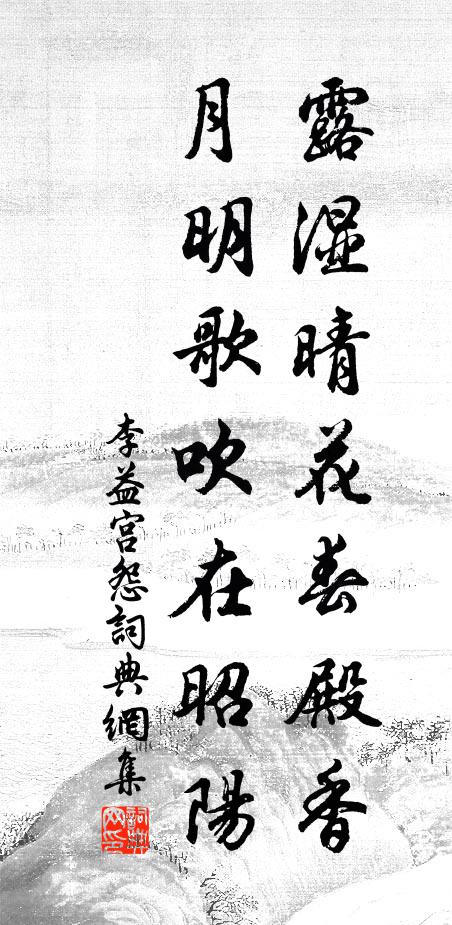 露湿晴花春殿香
月明歌吹在昭陽
李益宮怨詞典網集